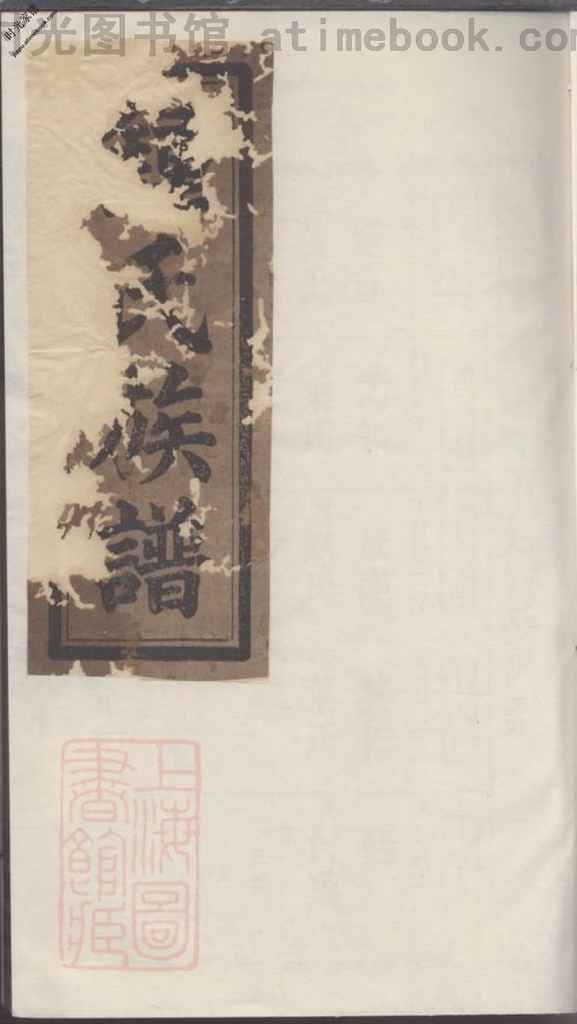 光图书馆 atimebook.com
时光家谱
氏族譜
上海圖
書館藏